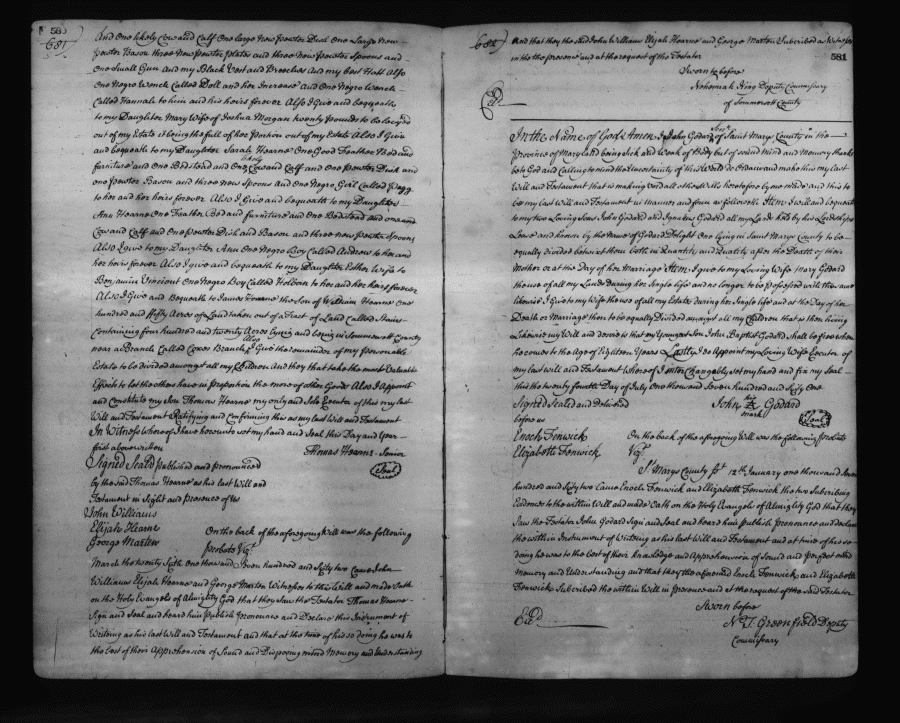 580
681
And one likely Cow and Calf One large New Pewter Dish one Large New
Pewter Bason three New Pewter Plates and three New Pewter Spoons and
one Small Gun and my Black Vest and Breeches And my best Hatt Also
One Negro Wench Called Doll and her Increase And One Negro Wench
Called Hannah to him and his heirs forever Also I Give and bequeath
to my Daughter Mary Wife of Joshua Morgan twenty Pounds to be
out of my Estate it being the full of her Portion out of my Estate Also I Give
and bequeath to my Daughter Sarah Hearne One Good Feather Bed and
furniture and One Bedstead and One likely Cow and Calf and one Pewter Dish and
one Pewter Bason and three New Spoons And One Negro Girl Called Pegg
to her and her heirs forever Also I Give and bequeath to my Daughter
Ann Hearne One Feather Bed and furniture and One Bedstead and one
Cow and Calf and one Pewter Dish and Bason and three New Pewter Spoons
Also I give to my Daughter Ann One Negro Boy Called Andrew to her and
her heirs forever Also I give and bequeath to my Daughter Esther Wife to
Benjamin Vincient One Negro Boy Called to her and her heirs forever
Also I Give and Bequeath to James Hearne the Son of William Hearne One
hundred and fifty Acres of Land taken out of a Tract of Land Called
Containing four hundred and twenty Acres lying and being in Sommersett County
near a Branch Called Coxes Branch Also I Give the remainder of my personable
Estate to be divided amongst all my Children And they that take the most Valuable
Effects to let the others have in Proportion the more of other Goods Also I Appoint
and Constitute my Son Thomas Hearne my only and Sole Executor of this my last
Will and Testament Ratifying and Confirming this as my last Will and Testament
In Witness whereof I have hereunto set my hand and Seal this Day and Year
first above written Thomas Hearne Senior
Signed Seal'd published and pronounced (Seal)
by the said Thomas Hearne as his last Will and
Testament in Sight and presence of us
John Williams
Elijah Hearne On the back of the aforegoing Will was the following
George Marten Probate Vizt.
March the twenty Sixth one thousand Seven hundred and Sixty two Came John
Williams Elijah Hearne and George Marten Witnesses to the Will and made Oath
on the Holy Evangels of Almighty God that they Saw the Testator Thomas Hearne
Sign and Seal and heard him Publish Pronounce and Declare this Instrument of
Writing as his last Will and Testament and that at the time of his so doing he was to
the best of their Apprehension of Sound and Disposing mind Memory and Understanding
682
581
And that they the said John Williams Elijah Hearne and George Marten Subscribed as Witnesses
in the presence and at the request of the Testator
Sworn to before
Nehemiah King Deputy Commissary
of Sommersett County
Exd.
In the Name of God Amen I John Godard Senr. of Saint Marys County in the
Province of Maryland being Sick and Weak of Body but of Sound mind and Memory thanks
be to God and Calling to mind the Uncertainty of this World do Ordain and make this my last
Will and Testament that is making Void all other Wills heretofore by me made and this to
be my last Will and Testament in manner and form as followeth Item I Will and bequeath
to my two Loving Sons John Godard and Ignatius Godard all my Land held by his Lordships
Lease and known by the Name of Godard Delight One lying in Saint Marys County to be
equally divided betwixt them both in Quantity and Quality after the Death of their
Mother or at the Day of her Marriage Item I give to my Loving Wife Mary Godard
the use of all my Lands during her Single life and no longer to be possessed with the same
likewise I Give to my Wife the use of all my Estate during her Single life and at the Day of her
Death or Marriage then to be Equally Divided amongst all my Children that is then living
Likewise my Will and desire is that my Youngest Son John Baptist Godard shall be free when
he comes to the Age of Eighteen Years Lastly I do Appoint my Loving Wife Executor of
my last will and Testament Whereof I Interchangably set my hand and fix my Seal
this the twenty fourth Day of July One thousand Seven hundred and Sixty One
Signed Sealed and Delivered John his mark Godard
before us (Seal)
Enoch Fenwick On the back of the aforegoing Will was the following Probate
Elizabeth Fenwick Vizt.
St. Marys County Sct. 12th January one thousand Seven
hundred and Sixty two Came Enoch Fenwick and Elizabeth Fenwick the two Subscribing
Evidences to the within Will and made Oath on the Holy Evangels of Almighty God that they
Saw the Testator John Godard Sign and Seal and heard him publish Pronounce and declare
the within Instrument of Writing as his last Will and Testament and at time of his so
doing he was to the best of their Knowledge and Apprehension of Sound and Perfect
Memory and Understanding and that they the aforesaid Enoch Fenwick and Elizabeth
Fenwick Subscribed the within Will in Presence and at the request of the Said Testator
Sworn before
Exd. N. T. Greenfield Deputy
Commissary